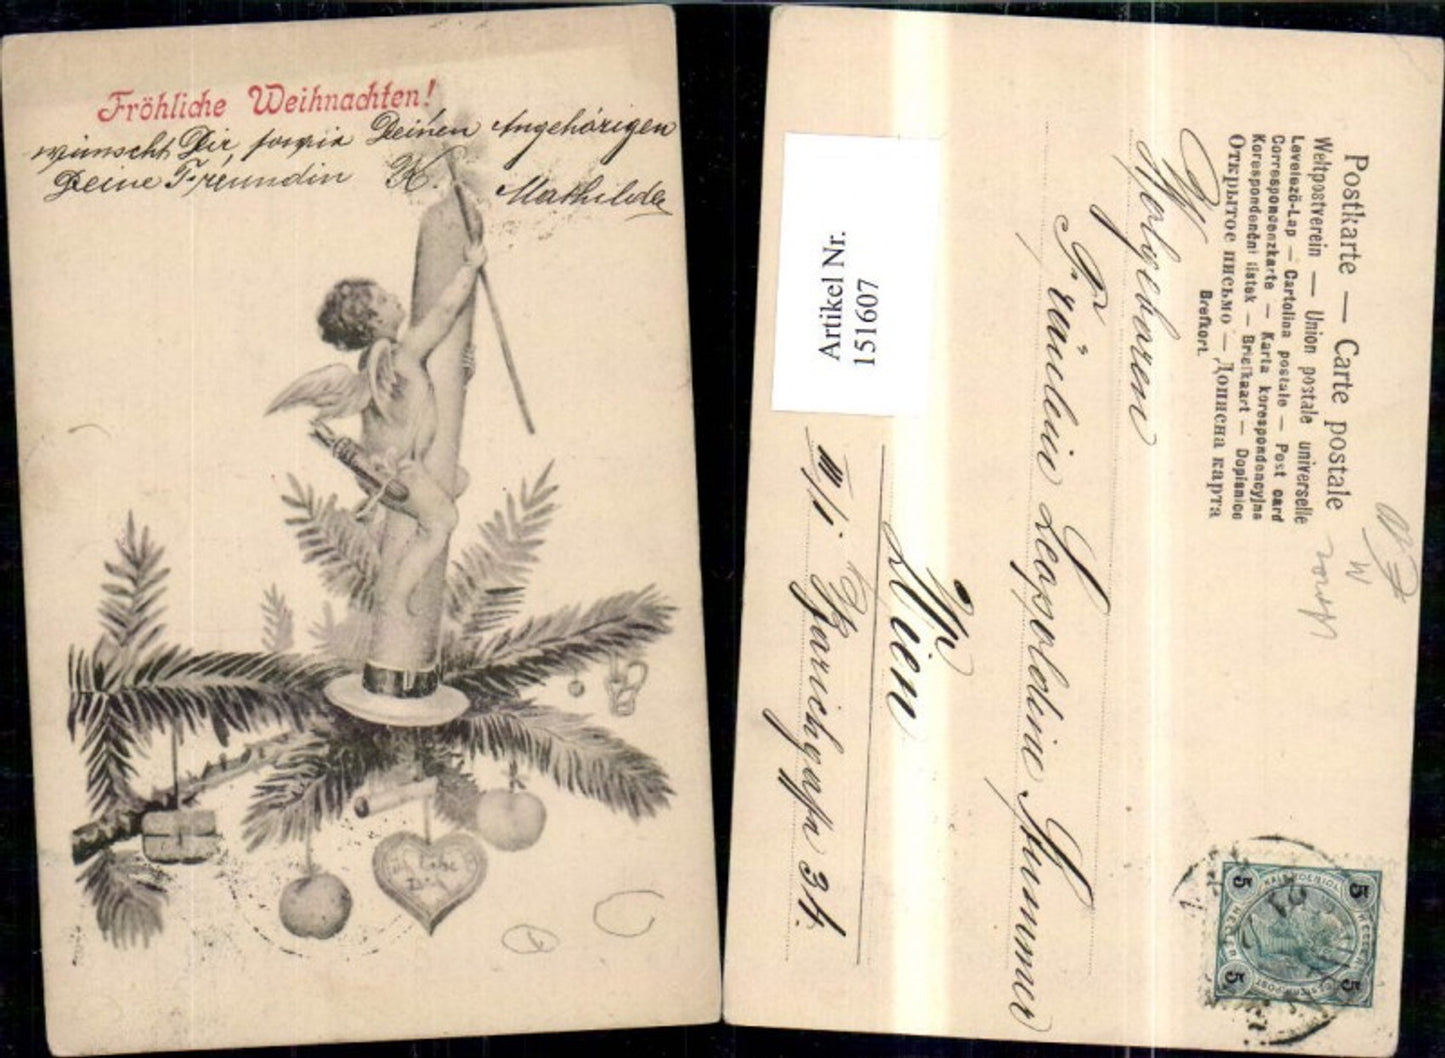 Fröhliche Weihnachten!
wünscht Dir, sowie Deinen Angehörigen
Deine Freundin K. Mathilde
Ich liebe
Dich
Postkarte — Carte postale
Weltpostverein — Union postale universelle
Levelező-Lap — Cartolina postale — Post card
Correspondenzkarte — Karta korespondencyjna
Korespondenční lístek — Briefkaart — Dopisnice
Открытое письмо — Дописна карта
Brefkort.
Wohlgeboren
Fräulein Leopoldine Stummer
Wien
III/1.
34.
Artikel Nr.
151607
5
5
5
5